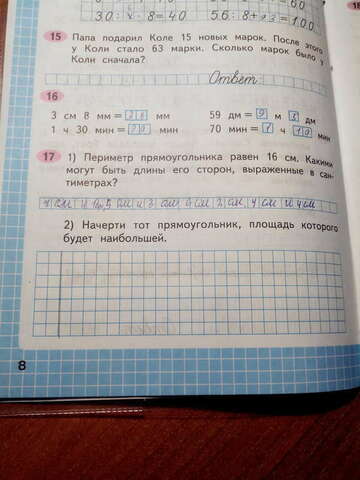 30 : 8 = 40 56 : 8 + 93 = 100
15 Папа подарил Коле 15 новых марок. После этого
у Коли стало 63 марки. Сколько марок было у
Коли сначала?
Ответ:
16
3 см 8 мм = 38 мм 59 дм = 5 м 9 дм
1 ч 30 мин = 90 мин 70 мин = 1 ч 10 мин
17 1) Периметр прямоугольника равен 16 см. Какими
могут быть длины его сторон, выраженные в сан-
тиметрах?
7 см и 1 см, 5 см и 3 см, 6 см 2 см, 4 см и 4 см
2) Начерти тот прямоугольник, площадь которого
будет наибольшей.
8